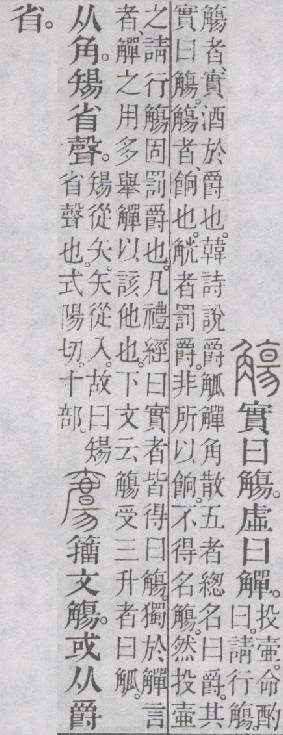 觴實曰觴。虛曰觶。投壺。命酌
曰。請行觴。
觴者、實酒於爵也。韓詩說爵觚觶角散五者緫名曰爵。其
實曰觴。觴者、餉也。觥者罰爵。非所以餉。不得名觴。然投壺
之請行觴固罰爵也。凡禮經曰實者皆得曰觴。獨於觶言
者、觶之用多舉觶以該他也。下文云觴受三升者曰觚。
从角。𥏻省聲。𥏻從矢。矢從入。故曰𥏻
省聲也。式陽切。十部。
籒文觴。或从爵
省。